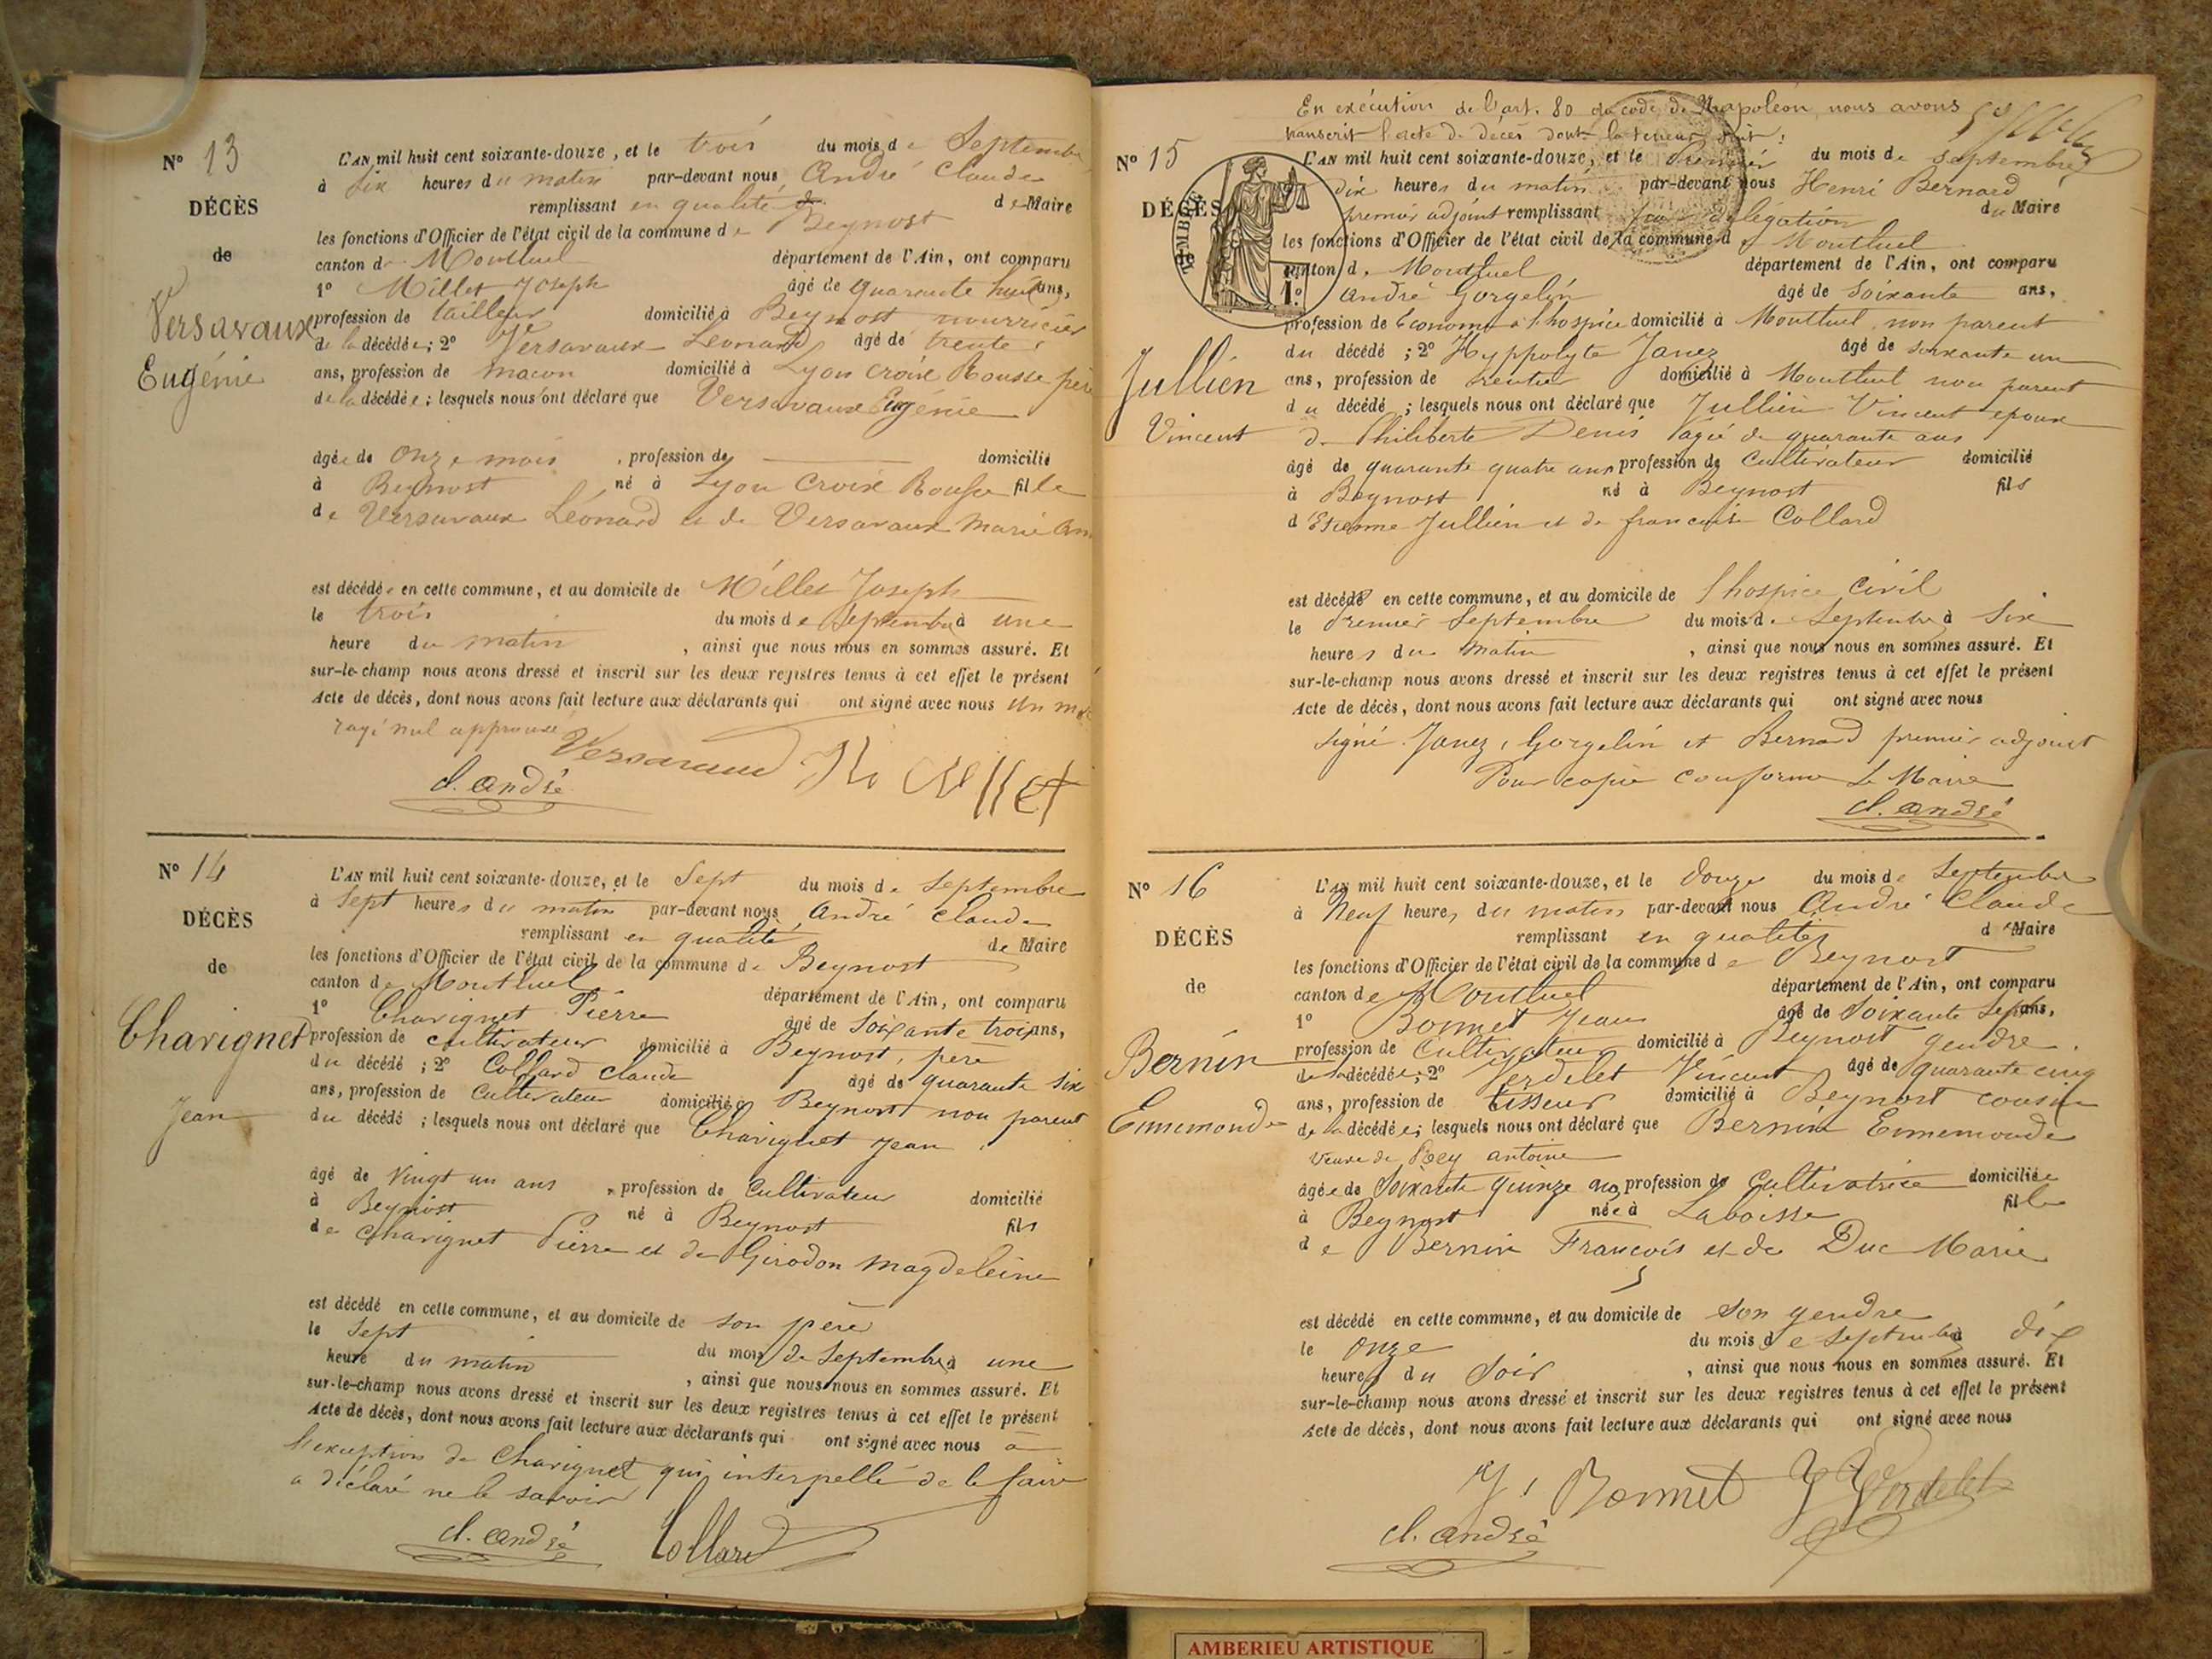 N° 13
DÉCÈS
de
Versavaux
Eugénie
L'AN mil huit cent soixante-douze, et le trois du mois de Septembre
à Six heures du matin par-devant nous André Claude
remplissant en qualité de Maire
les fonctions d'Officier de l'état civil de la commune de Beynost
canton de Montluel département de l'Ain, ont comparu
1° Millet Joseph âgé de quarante huit ans,
profession de tailleur domicilié à Beynost nourricier
de la décédée; 2° Versavaux Léonard âgé de trente
ans, profession de maçon domicilié à Lyon croix Rousse père
de la décédée; lesquels nous ont déclaré que Versavaux Eugénie
âgée de Onze mois, profession de domicilié
à Beynost né à Lyon Croix Rousse fille
de Versavaux Léonard et de Versavaux Marie
est décédée en cette commune, et au domicile de Millet Joseph
le trois du mois de Septembre à une
heure du matin, ainsi que nous nous en sommes assuré. Et
sur-le-champ nous avons dressé et inscrit sur les deux registres tenus à cet effet le présent
Acte de décès, dont nous avons fait lecture aux déclarants qui ont signé avec nous un mot
rayé nul approuvé
Versavaux Millet
cl. andré
N° 14
DÉCÈS
de
Charignet
Jean
L'AN mil huit cent soixante-douze, et le Sept du mois de Septembre
à Sept heures du matin par-devant nous André Claude
remplissant en qualité de Maire
les fonctions d'Officier de l'état civil de la commune de Beynost
canton de Montluel département de l'Ain, ont comparu
1° Charignet Pierre âgé de Soixante trois ans,
profession de cultivateur domicilié à Beynost, père
du décédé; 2° Collard Claude âgé de quarante six
ans, profession de Cultivateur domicilié à Beynost non parent
du décédé; lesquels nous ont déclaré que Charignet Jean
âgé de Vingt un ans, profession de Cultivateur domicilié
à Beynost né à Beynost fils
de Charignet Pierre et de Girodon Magdeleine
est décédé en cette commune, et au domicile de son père
le Sept du mois de Septembre à une
heure du matin, ainsi que nous nous en sommes assuré. Et
sur-le-champ nous avons dressé et inscrit sur les deux registres tenus à cet effet le présent
Acte de décès, dont nous avons fait lecture aux déclarants qui ont signé avec nous à
l'exception de Charignet qui interpellé de le faire
a déclaré ne le savoir
cl. andré Collard
En exécution de l'art. 80 du code de Napoléon nous avons
transcrit l'acte de décès dont la teneur suit:
N° 15
DÉCÈS
TIMBRE
Jullien
Vincent
L'AN mil huit cent soixante-douze, et le Premier du mois de Septembre
dix heures du matin par-devant nous Henri Bernard
premier adjoint remplissant par délégation du Maire
les fonctions d'Officier de l'état civil de la commune de Montluel
canton de Montluel département de l'Ain, ont comparu
1° André Gorgelin âgé de Soixante ans,
profession de Econome à l'hospice domicilié à Montluel non parent
du décédé; 2° Hyppolyte Janez âgé de soixante un
ans, profession de rentier domicilié à Montluel non parent
du décédé; lesquels nous ont déclaré que Jullien Vincent époux
de Philiberte Denis âgée de quarante ans
âgé de quarante quatre ans profession de Cultivateur domicilié
à Beynost né à Beynost fils
d'Etienne Jullien et de françoise Collard
est décédé en cette commune, et au domicile de l'hospice Civil
le Premier Septembre du mois de Septembre à Six
heures du matin, ainsi que nous nous en sommes assuré. Et
sur-le-champ nous avons dressé et inscrit sur les deux registres tenus à cet effet le présent
Acte de décès, dont nous avons fait lecture aux déclarants qui ont signé avec nous
Signé Janez, Gorgelin et Bernard premier adjoint
Pour copie conforme Le Maire
cl. andré
N° 16
DÉCÈS
de
Bernin
Ennemonde
L'AN mil huit cent soixante-douze, et le douze du mois de Septembre
à Neuf heures du matin par-devant nous André Claude
remplissant en qualité de Maire
les fonctions d'Officier de l'état civil de la commune de Beynost
canton de Montluel département de l'Ain, ont comparu
1° Bonnet Jean âgé de Soixante Sept ans,
profession de Cultivateur domicilié à Beynost gendre
de la décédée; 2° Verdelet Vincent âgé de quarante cinq
ans, profession de tisseur domicilié à Beynost cousin
de la décédée; lesquels nous ont déclaré que Bernin Ennemonde
veuve de Rey antoine
âgée de Soixante quinze ans profession de Cultivatrice domiciliée
à Beynost née à Laboisse fille
de Bernin François et de Duc Marie
est décédé en cette commune, et au domicile de Son gendre
le Onze du mois de Septembre à dix
heures du Soir, ainsi que nous nous en sommes assuré. Et
sur-le-champ nous avons dressé et inscrit sur les deux registres tenus à cet effet le présent
Acte de décès, dont nous avons fait lecture aux déclarants qui ont signé avec nous
J. Bonnet V Verdelet
cl. andré
AMBERIEU ARTISTIQUE